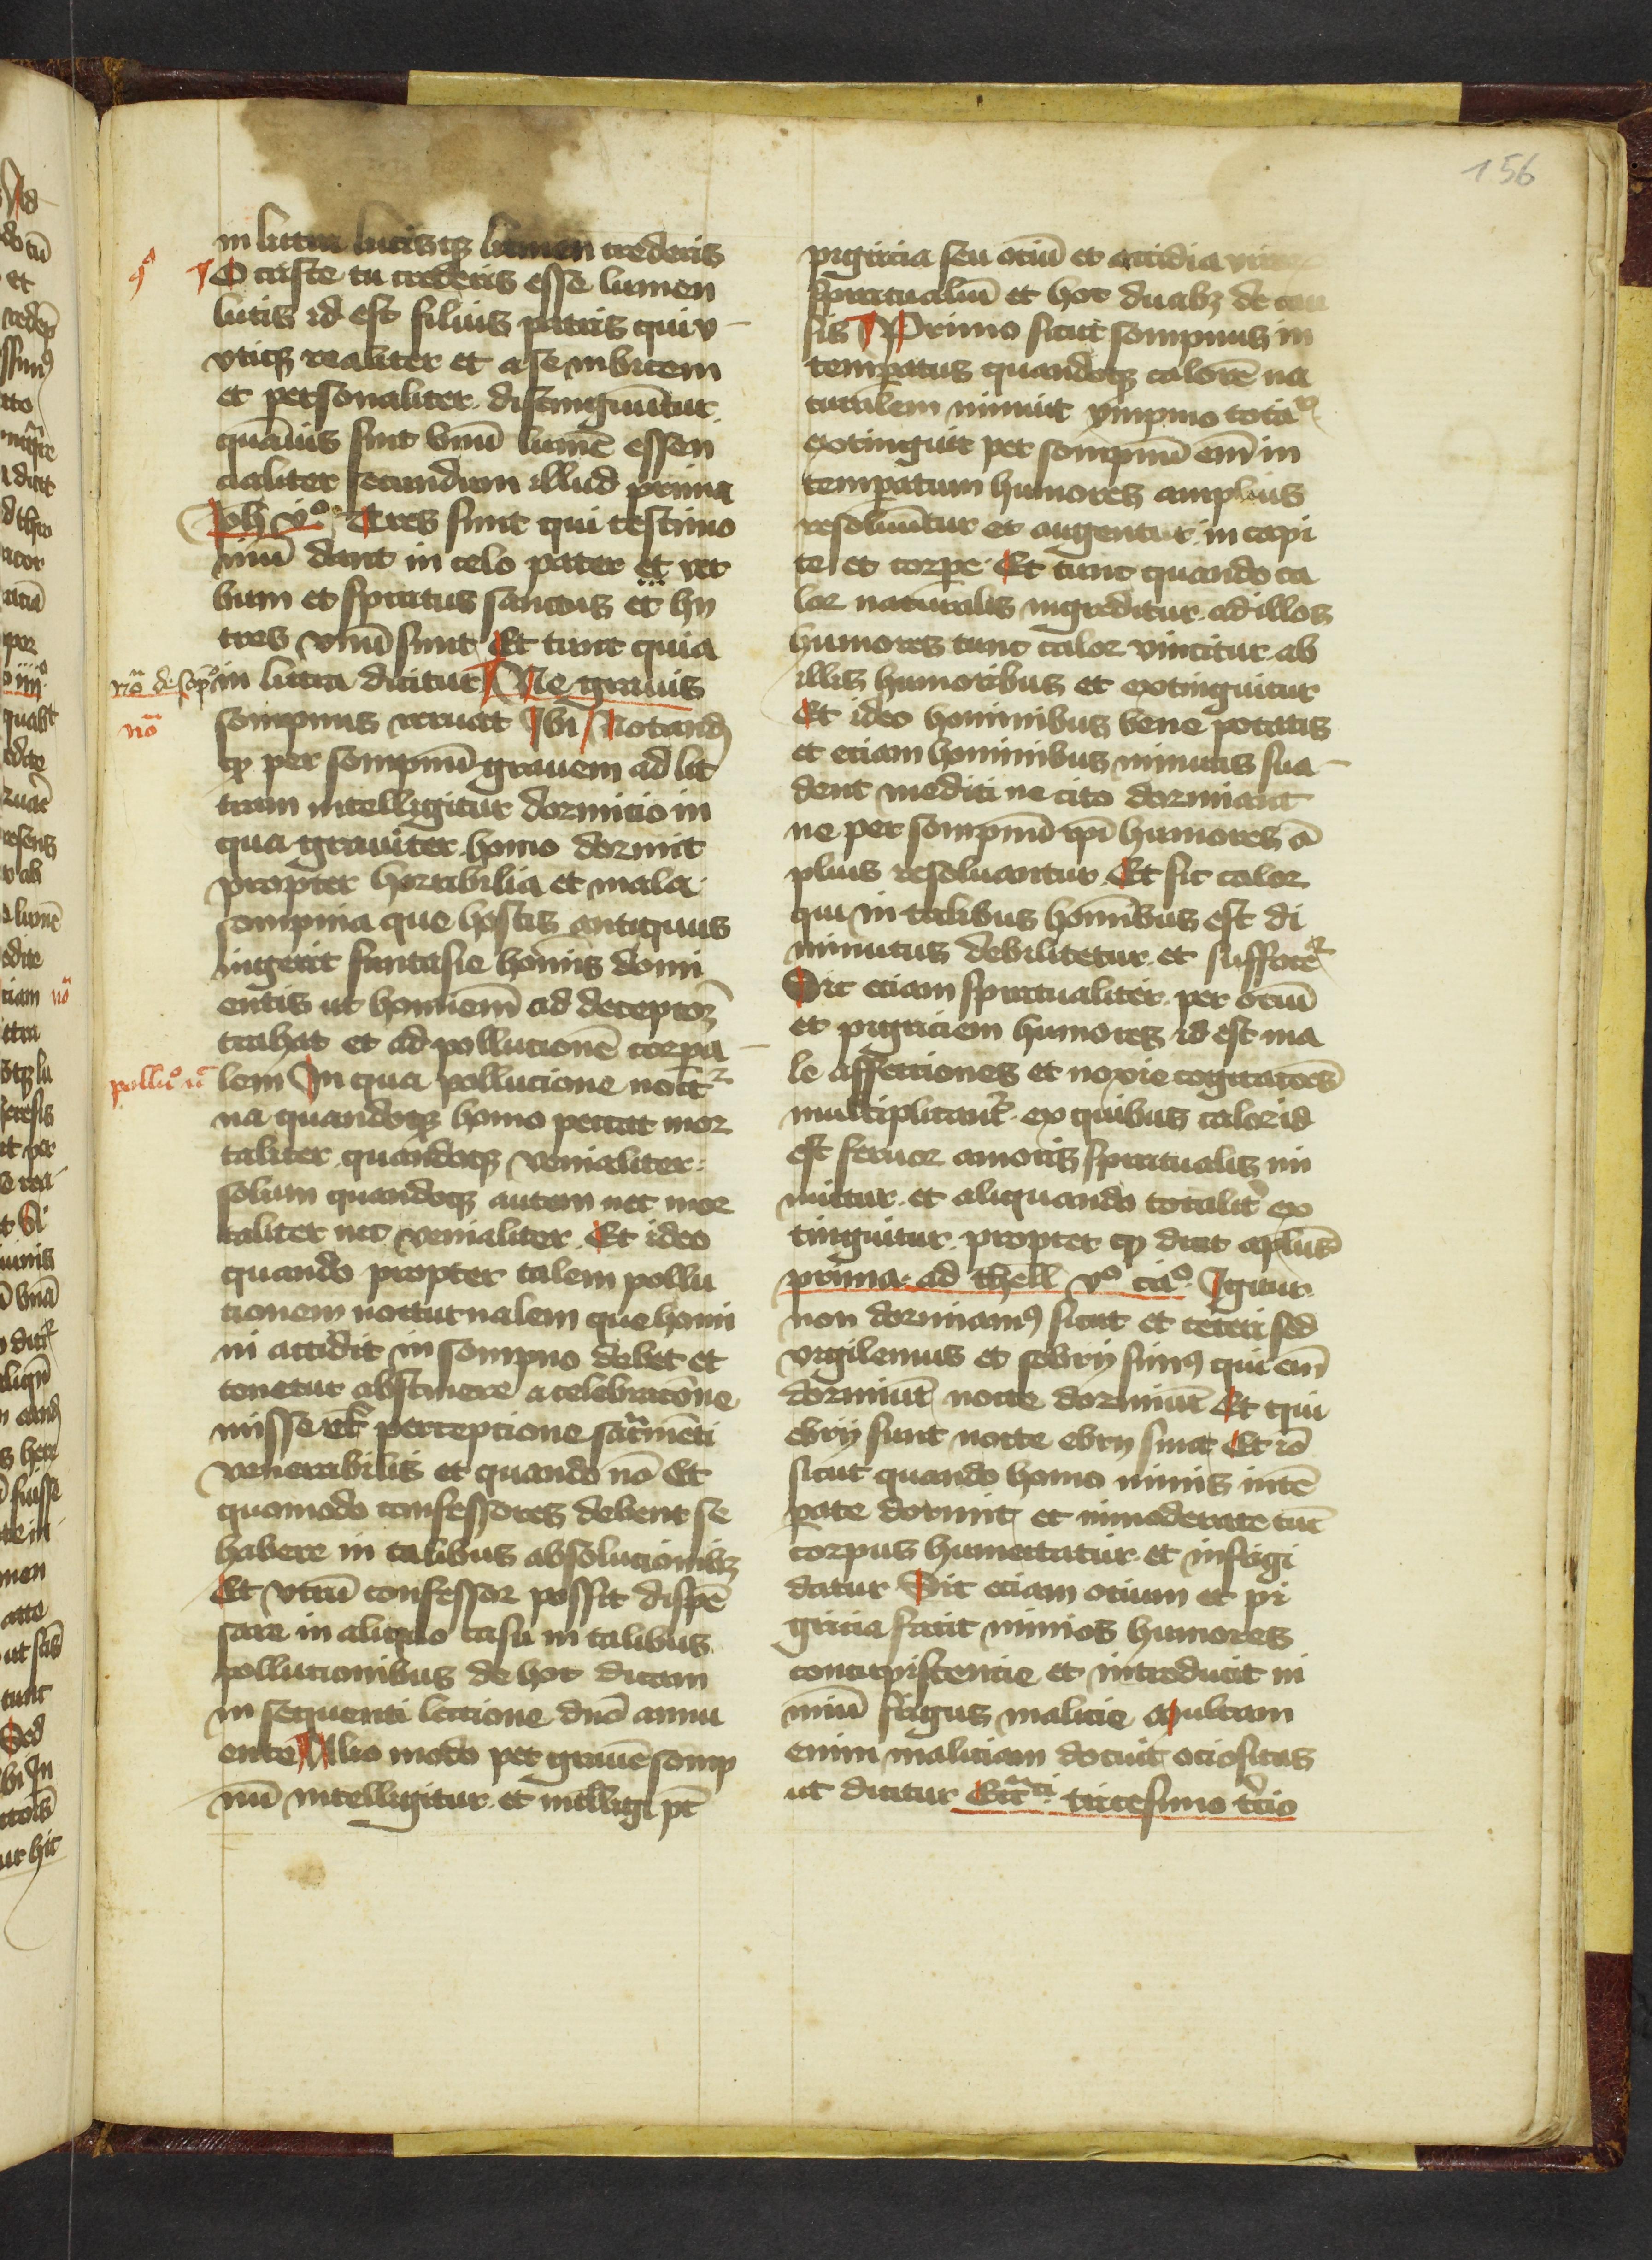 156
in litera lucisq3 lumen crederis
O criste tu crederis esse lumen
lucis id est filius patris qui v
vtiq3 realiter et a se inuicem
et personaliter distinguūtur
quāuis sint vnū lumē essen
cialiter secundum illud prima
Joh vº Tres sunt qui testimo
niū dant in celo pater et ver
bum et spiritus sanctus et hij
tres vnū sunt Et tunc quia
nō de sōpº
in litera dicitur Ne grauis
nō
sompnus irruat Ibi Notand
qp per sompnū grauem ad lit
teram intelligitur dormicio in
qua grauiter homo dormit
propter horribilia et mala
sompnia que hostis antiquus
ingerit fantasie hōmis dormi
entis ut hominem ad deceptōꝫ
trahat et ad pollucionē corpa
polluº
lem In qua pollucione noctr
na quandoq3 homo peccat mor
taliter quandoq3 venialiter
solum quandoq3 autem nec mor
taliter nec venialiter Et ideo
quando propter talem pollu
tionem nocturnalem que homi
ni accidit in sompno debet et
tenetur abstinere a celebracōne
misse vel perceptione sacrmēti
venerabilis et quando nō Et
quomodo confessores debent se
habere in talibus absolucionib3
Et vtrū confessor possit dispē
sare in aliquo casu in talibus
pollucionibus de hoc dicam
in sequenti lectione dnō annu
ente Alio modo per grauē somp
nū intelligitur et intelligi pt
pigricia seu ociū et accidia
spiritualiū et hoc duab3 de cau
sis Primo sicut sompnus in
temperatus quandoq3 calorē na
turalem minuit ymmo totar
extinguit per sompnū em in
temperatum humores amplius
resoluūtur et augentur in capi
te et corpe Et tunc quando ca
lor naturalis ingreditur ad illos
humores tunc calor vincitur ab
illis humoribus et extinguitur
Et ideo hominibus bene potatis
et eciam hominibus minutis sua
dent medici ne cito dormiant
ne per sompnū ipi humores ā
plius resoluantur Et sic calor
qui in talibus hominibus est di
minutus debilitetur et suffocer
Sic eciam spiritualiter per ociū
et pigriciem humores id est ma
le affectiones et noxie cogitatoes
multiplicant ex quibus calor id
est feruor amoris spiritualis mi
nuitur et aliquando totalit ex
tinguitur propter qp dicit aplus
prima ad thell vº caº Igitur
non dormiamꝰ sicut et ceteri sed
vigilemus et sobrij simꝰ qui em
dormiūt nocte dormiūt Et qui
ebrij sunt nocte ebrij sunt Et iō
sicut quando homo nimis intē
pate dormit et inmoderate tūc
corpus humectatur et infrigi
datur Sic eciam ocium et pi
gricia facit nimios humores
concupiscencie et introducit ni
miū frigus malicie Multam
enim maliciam docuit ociositas
ut dicitur Ecci tricesimo tcio